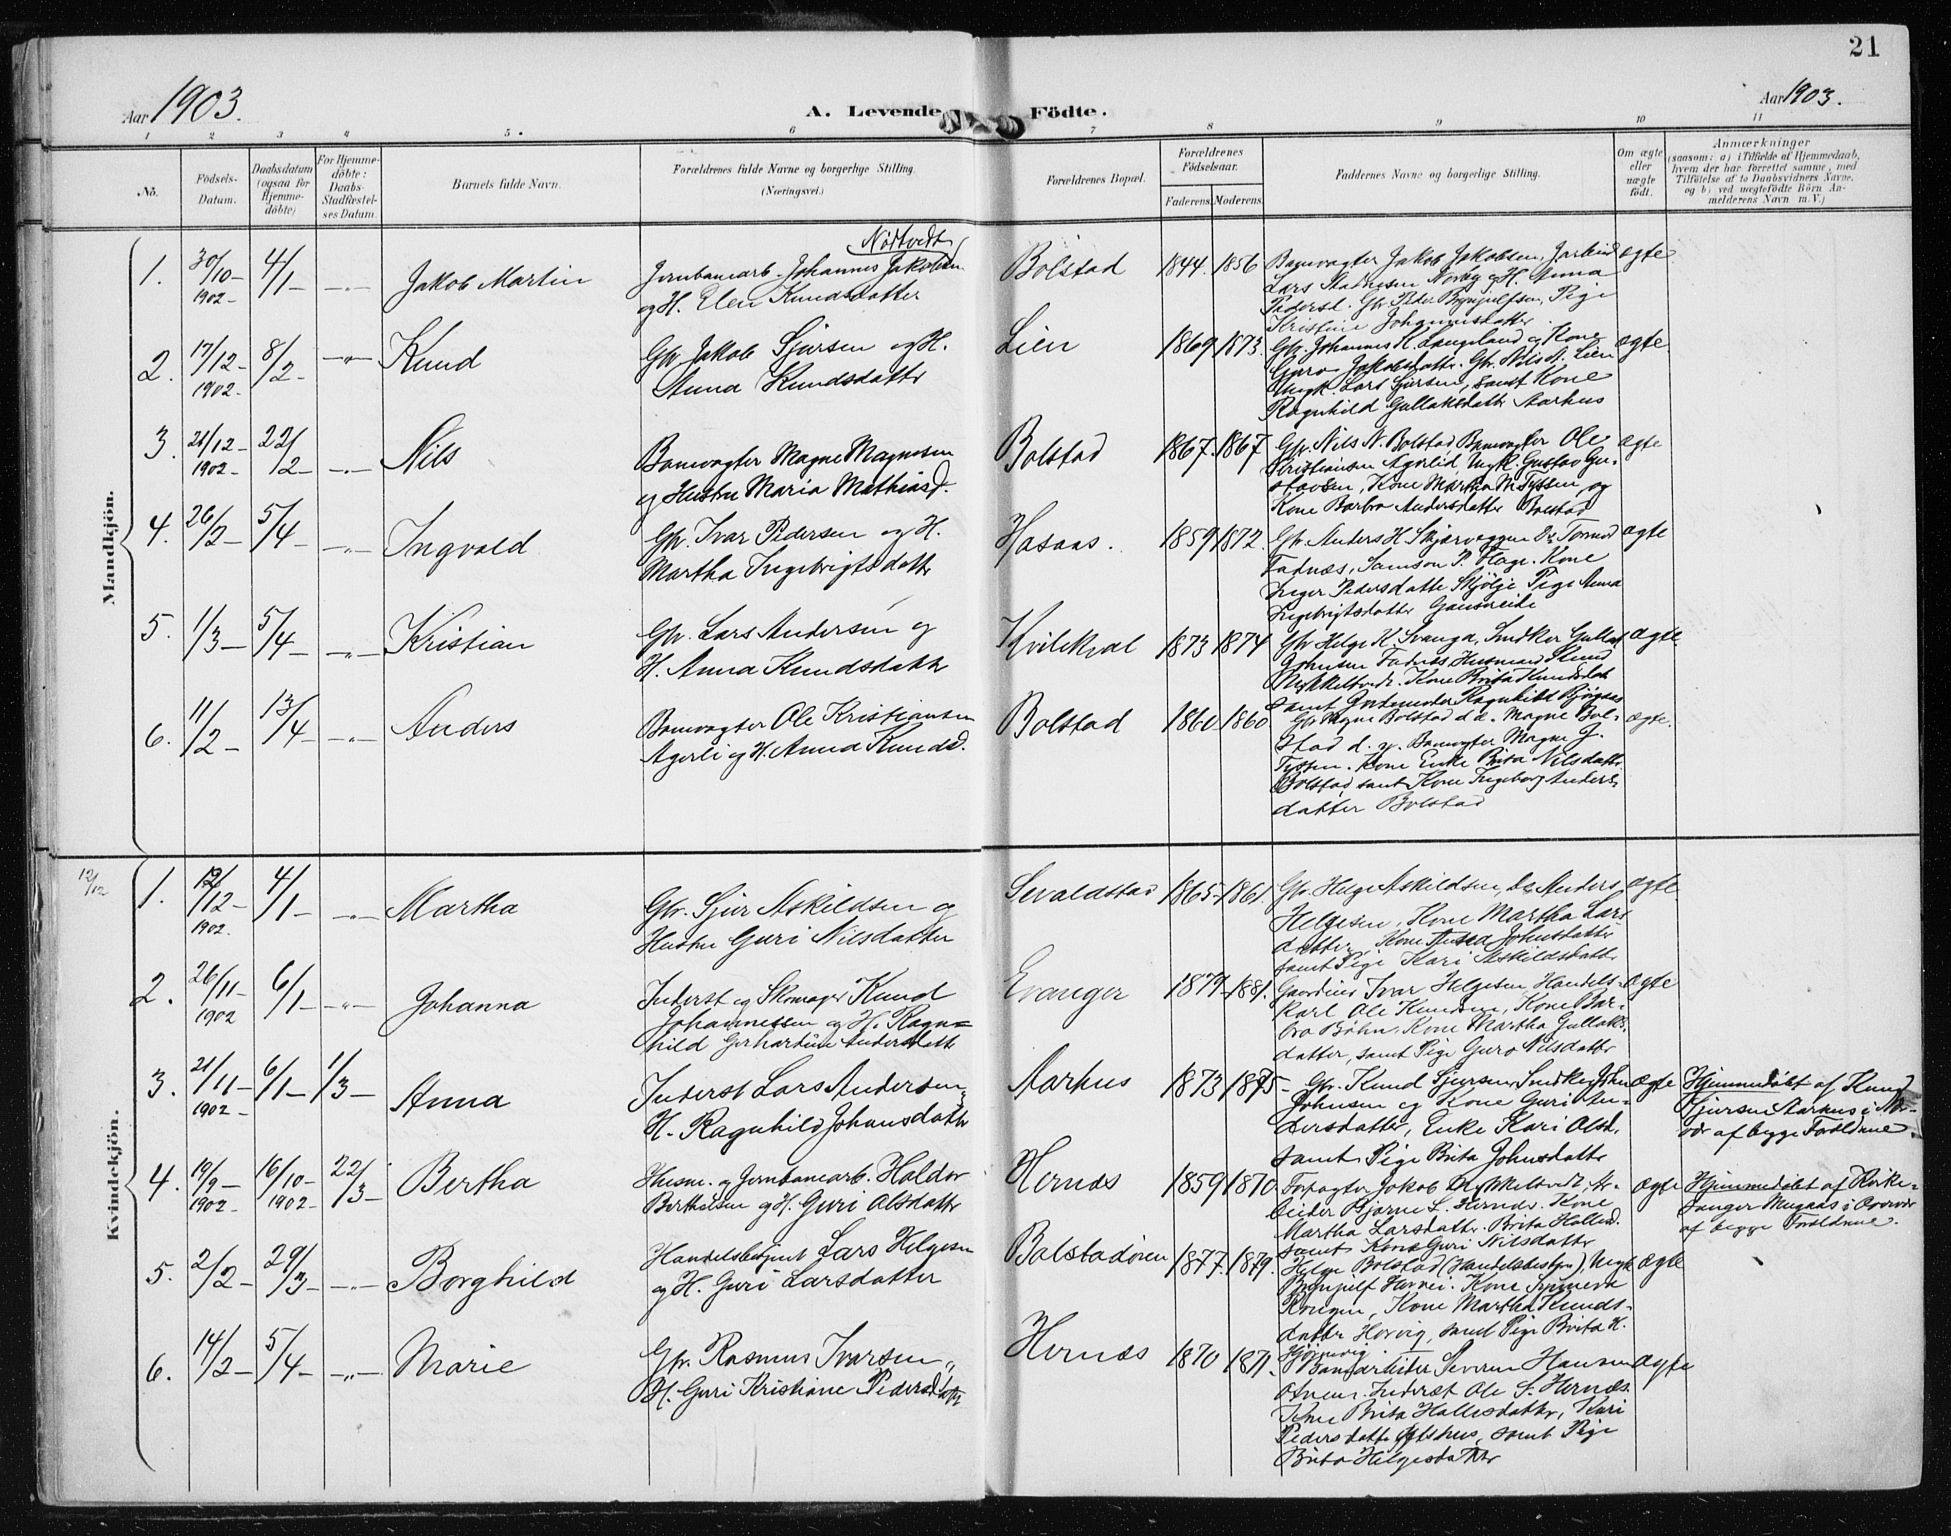 21
Aar 1903.
A. Levende Födte.
Aar 1903.
1 2 3 4 5. 6 7 8 9 10 11
No.
Födsels-Datum.
Daabsdatum (ogsaa for Hjemmedöbte)
For Hjemmedöbte: Daabs-Stadfæstelses Datum.
Barnets fulde Navn.
Forældrenes fulde Navne og borgerlige Stilling.
(Næringsvei.)
Forældrenes Bopæl.
Forældrenes Födselsaar.
Faderens. Moderens.
Faddernes Navne og borgerlige Stilling.
Om ægte eller uægte födt.
Anmærkninger
(saasom: a) i Tilfælde af Hjemmedaab, hvem der har forrettet samme, med Tilföielse af to Daabsvidners Navne, og b) ved uægtefödte Börn Anmelderens Navn m. V.)
Mandkjön.
1. 30/10 1902 4/1 Jakob Martin
Nödtvedt
Jernbanearb. Johannes Jakobsen
og H. Elen Knudsdatter
Bolstad 1844. 1856
Banevogter Jakob Jakobsen,
Kristine Johannesdatter
ægte
2. 17/12 1902 8/2 Knud
Gbr. Jakob Sjursen og H.
Anna Knudsdatter
Lien 1869 1873.
Gbr. Johannes K. Langeland og Kone
Guro Jakobsdatter. Gbr. Nils N. Lien
Ungk. Lars Sjursen, samt Kone
Ragnhild Gullaksdatter Aarhus
ægte
3. 21/12 1902 22/2 Nils
Banevogter Magne Magnesen
og Hustru Maria Mathiasd.
Bolstad 1867. 1867
Gbr. Nils N. Bolstad, Banevogter Ole
Kristiansen Agerlid, Ungk. Gustav Gustavsen, Kone Martha M. Tyssen, og
Kone Barbro Andersdatter Bolstad
ægte
4. 26/2 5/4 Ingvald
Gbr. Ivar Pedersen og H.
Martha Ingebrigtsdatter
Hosaas. 1859 1872.
Fadnæs, Samson P. Flage. Kone
Inger Pedersdatter Pige Anna
Ingebrigtsdatter
ægte
5. 1/3 5/4 Kristian
Gbr. Lars Andersen og
H. Anna Knudsdatter
Kvilekval 1873 1874
Gbr Helge K Svanga, Snedker
Johnsen Fadnæs, Husmand Knud
Mykkeltvedt. Kone Brita Knudsdat
samt Gordemoder Ragnhild
ægte.
6. 11/2 13/4 Anders
Banevogter Ole Kristiansen
Agerli og H. Anna Knudsd.
Bolstad 1860 1860
Gbr Magne Bolstad d. e. Magne Bolstad d. y. Banevogter Magne G.
Tyssen. Kone Enke Brita Nilsdatter
Bolstad, samt Kone Ingeborg Andersdatter Bolstad
ægte.
Kvindekjön.
12/12
1. 12/12 1902. 4/1 Martha
Gbr. Sjur Askildsen og
Hustru Guri Nilsdatter
Sevaldstad 1865. 1861.
Gbr. Helge Askildsen, Do Anders
Helgesen, Kone Martha Larsdatter, Kone Johnsdatter
samt Pige Kari Askildsdatter
ægte
2. 26/11 1902 6/1 Johanna
Inderst og Skomager Knud
Johannessen og H. Ragnhild Gerhardine Andersdatter
Evanger 1879 1881.
Gaardeier Ivar Helgesen, Handelskarl Ole Knudsen, Kone Barbro Böhn, Kone Martha Gullaksdatter, samt Pige Guro Nilsdatter
ægte
3. 21/11 1902 6/1 1/3 Anna
Inderst Lars Andersen
H. Ragnhild Johansdatter
Aarhus 1873 1875
Gbr. Knud Sjursen, Snedker John
Johnsen og Kone Guri Andersdatter, Enke Kari Olsd.
samt Pige Brita Johnsdatter
ægte
Hjemmedöbt af Knud
Sjursen Aarhus i
af begge Forældrene
4. 19/9 1902 16/10 1902 22/3 Bertha
Husm. og Jernbanearb. Haldor
Berthelsen og H. Guri Olsdatter
Hernæs 1859 1870.
Forpagter Jakob Mykkeltvedt, Arbeider Bjarne L. Hernæs. Kone
Martha Larsdatter. Brita
samt Kone Guri Nilsdatter
ægte
Hjemmedöbt af Kirkesanger Mugaas i Overvær
af begge Forældrene.
5. 2/2 29/3 Borghild
Handelsbetjent Lars Helgesen
og H. Guri Larsdatter
Bolstadören 1877. 1879.
Helge Bolstad (Handelsbestyr), Ungk
Brynjulf Kone Synneva
Kone Martha Knudsdatter Horvig, samt Pige Brita H.
ægte
6. 14/2 5/4 Marie
Gbr. Rasmus Ivarsen
H. Guri Kristiane Pedersdatter
Hernæs 1870 1871.
Banearbeider Severin Hansen
Inderst Ole S. Hernæs.
Kone Brita Hallesdatter, Kari
Pedersdatter samt Pige
Brita Helgesdatter
ægte